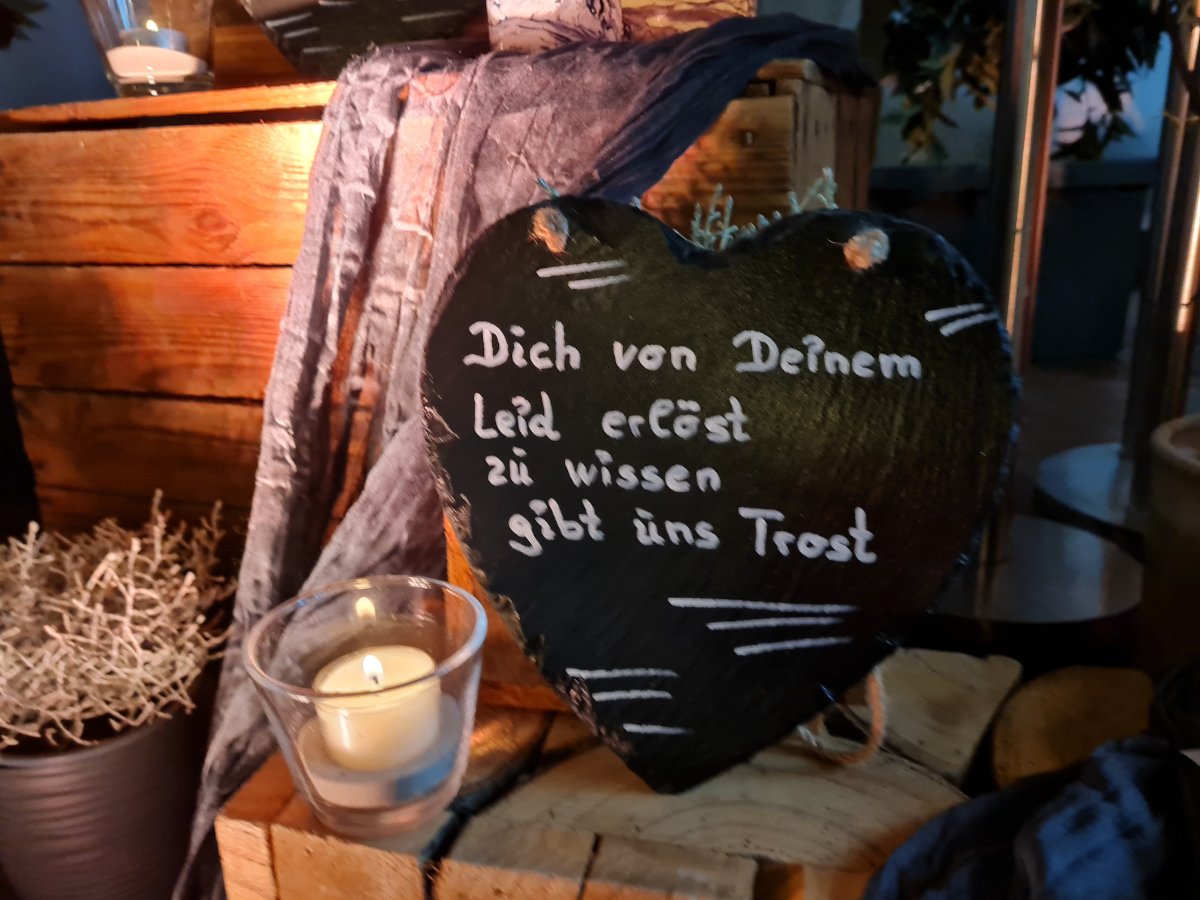 Dich von Deinem
Leid erlöst
zu wissen
gibt uns Trost